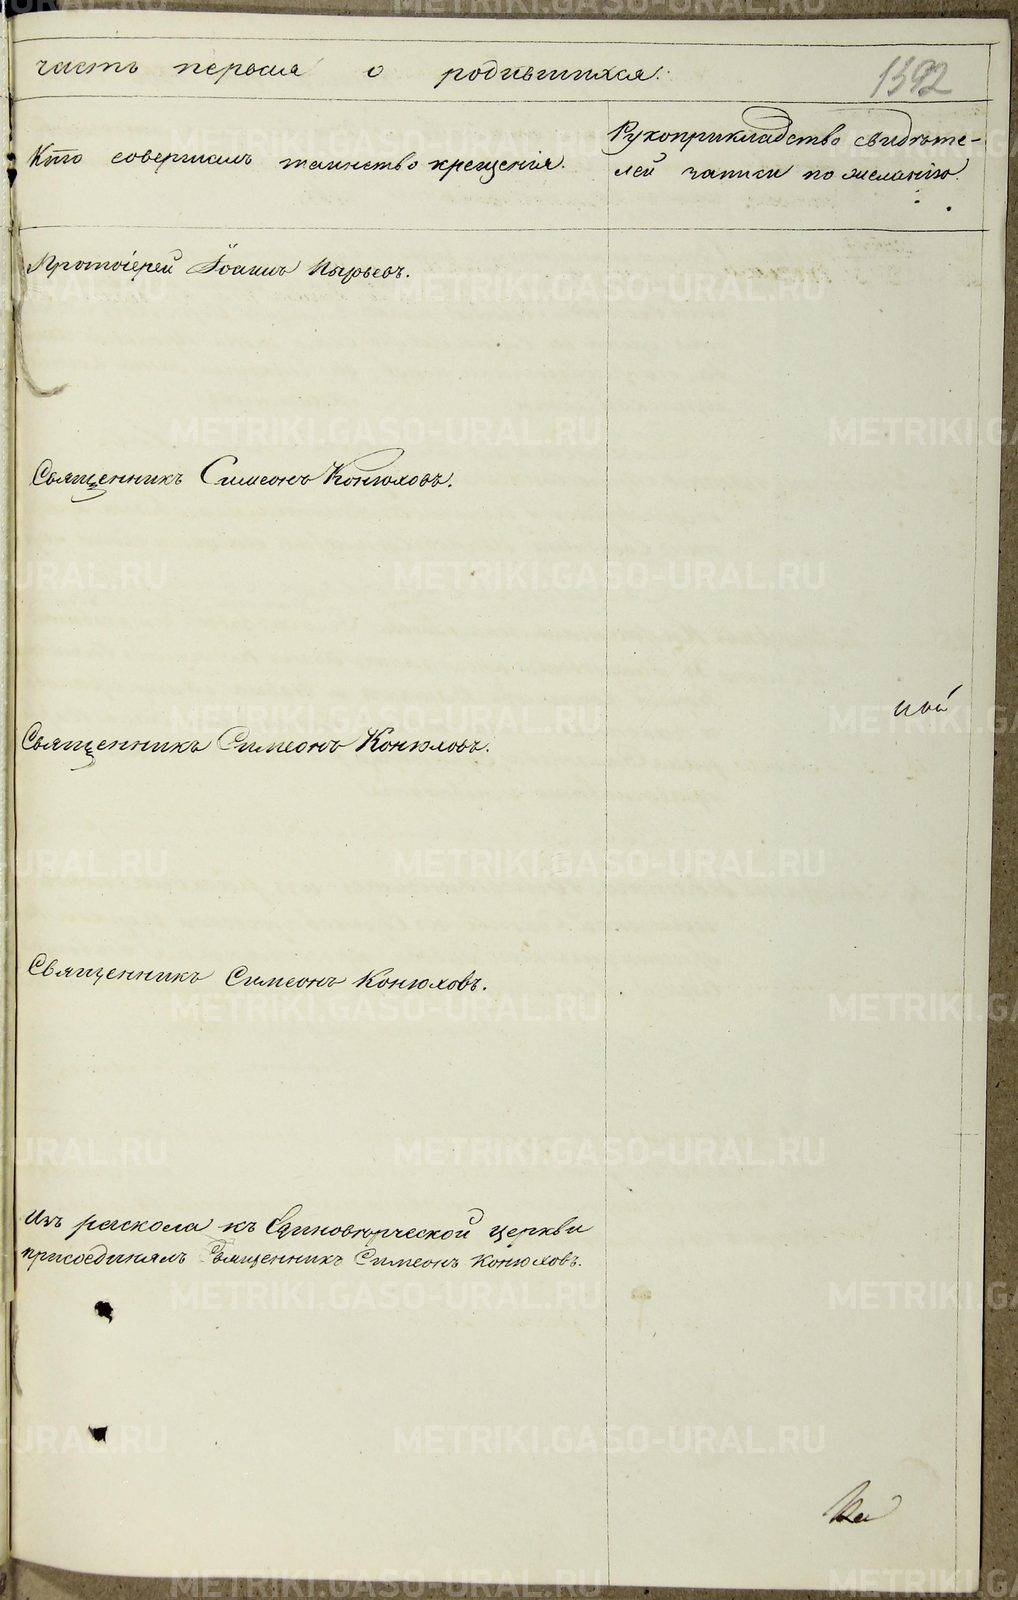 часть первая о родившихся.
1392
Кто совершалъ таинство крещенія.
Рукоприкладство свидѣте-
лей записи по желанію.
Протоіерей Іоаннъ Пырьевъ.
Священникъ Симеонъ Конюховъ.
ной
Священникъ Симеонъ Конюховъ.
Священникъ Симеонъ Конюховъ.
Изъ раскола къ Единовѣрческой церкви
присоединялъ Священникъ Симеонъ Конюховъ.
METRIKI.GASO-URAL.RU